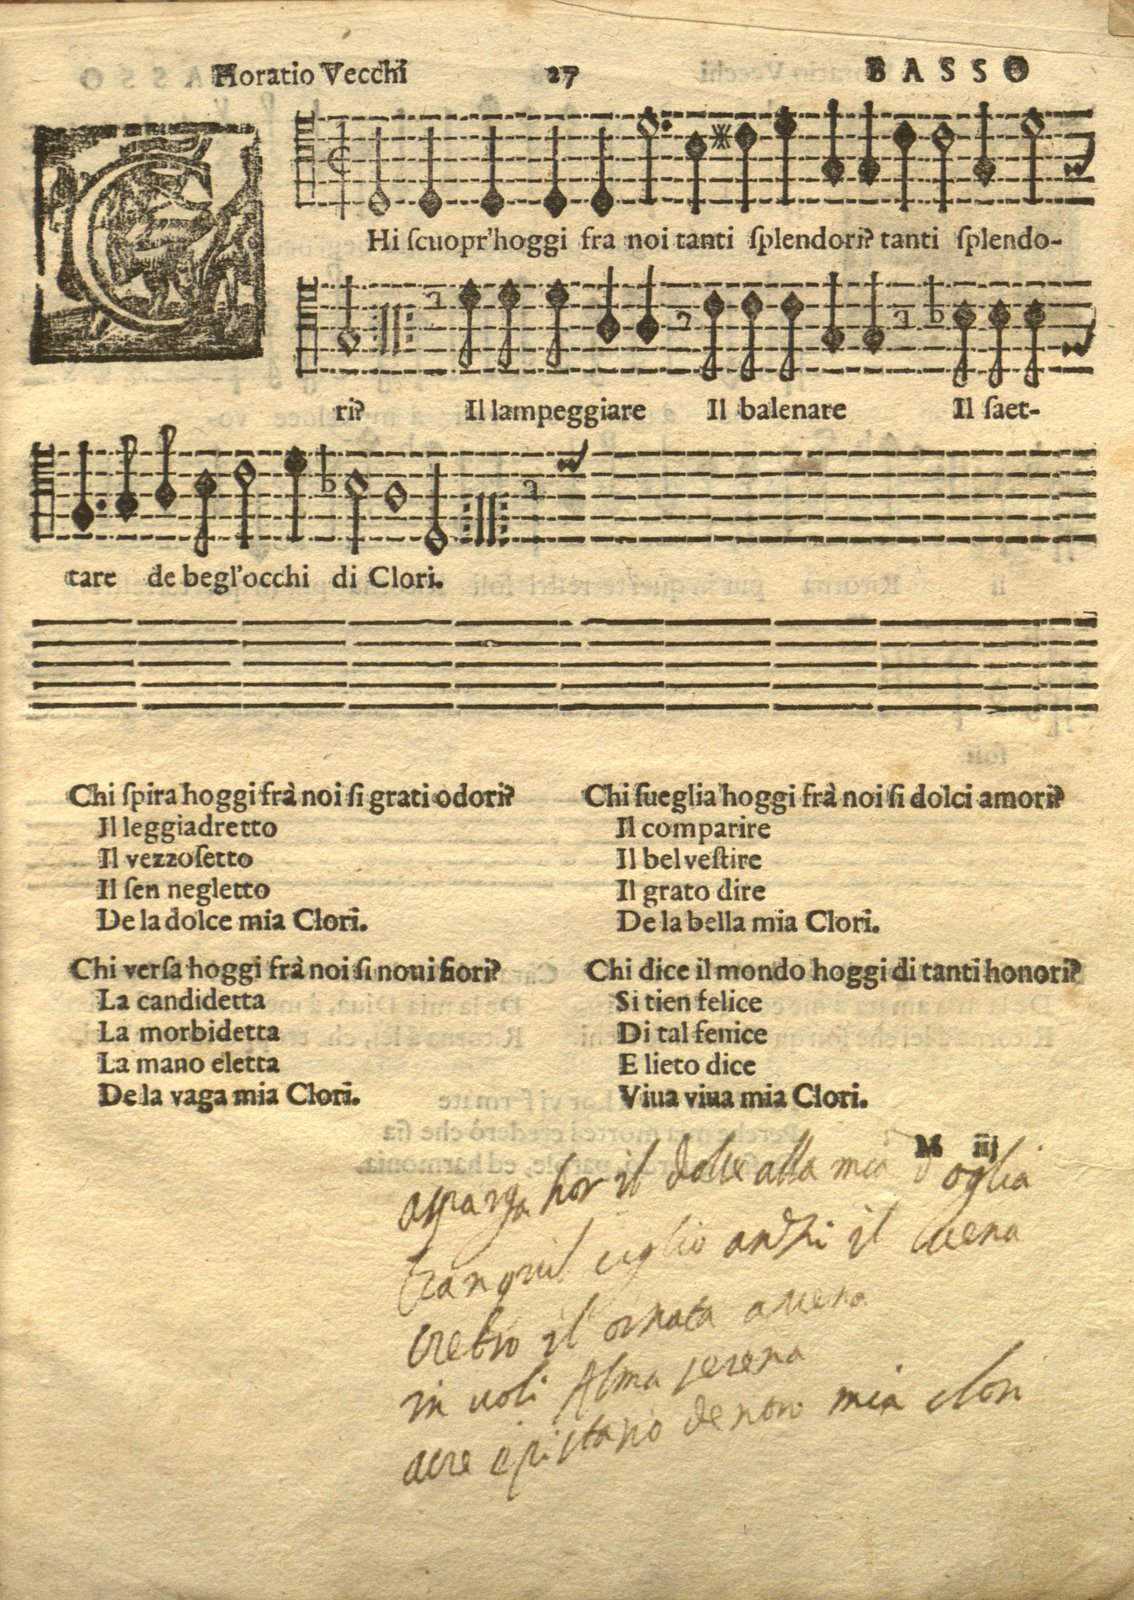 Horatio Vecchi 27 BASSO
CHi ſcuopr'hoggi fra noi tanti ſplendori? tanti ſplendo-
ri? Il lampeggiare Il balenare Il ſaet-
tare de begl'occhi di Clori.
Chi ſpira hoggi frà noi ſi grati odori?
Il leggiadretto
Il vezzoſetto
Il ſen negletto
De la dolce mia Clori.
Chi verſa hoggi frà noi ſi noui fiori?
La candidetta
La morbidetta
La mano eletta
De la vaga mia Clori.
Chi ſueglia hoggi frà noi ſi dolci amori?
Il comparire
Il bel veſtire
Il grato dire
De la bella mia Clori.
Chi dice il mondo hoggi di tanti honori?
Si tien felice
Di tal fenice
E lieto dice
Viua viua mia Clori.
M iij
hor il dolce alla mia doglia
tranquil ciglio il
il ornata
in voli Alma serena
mia clori